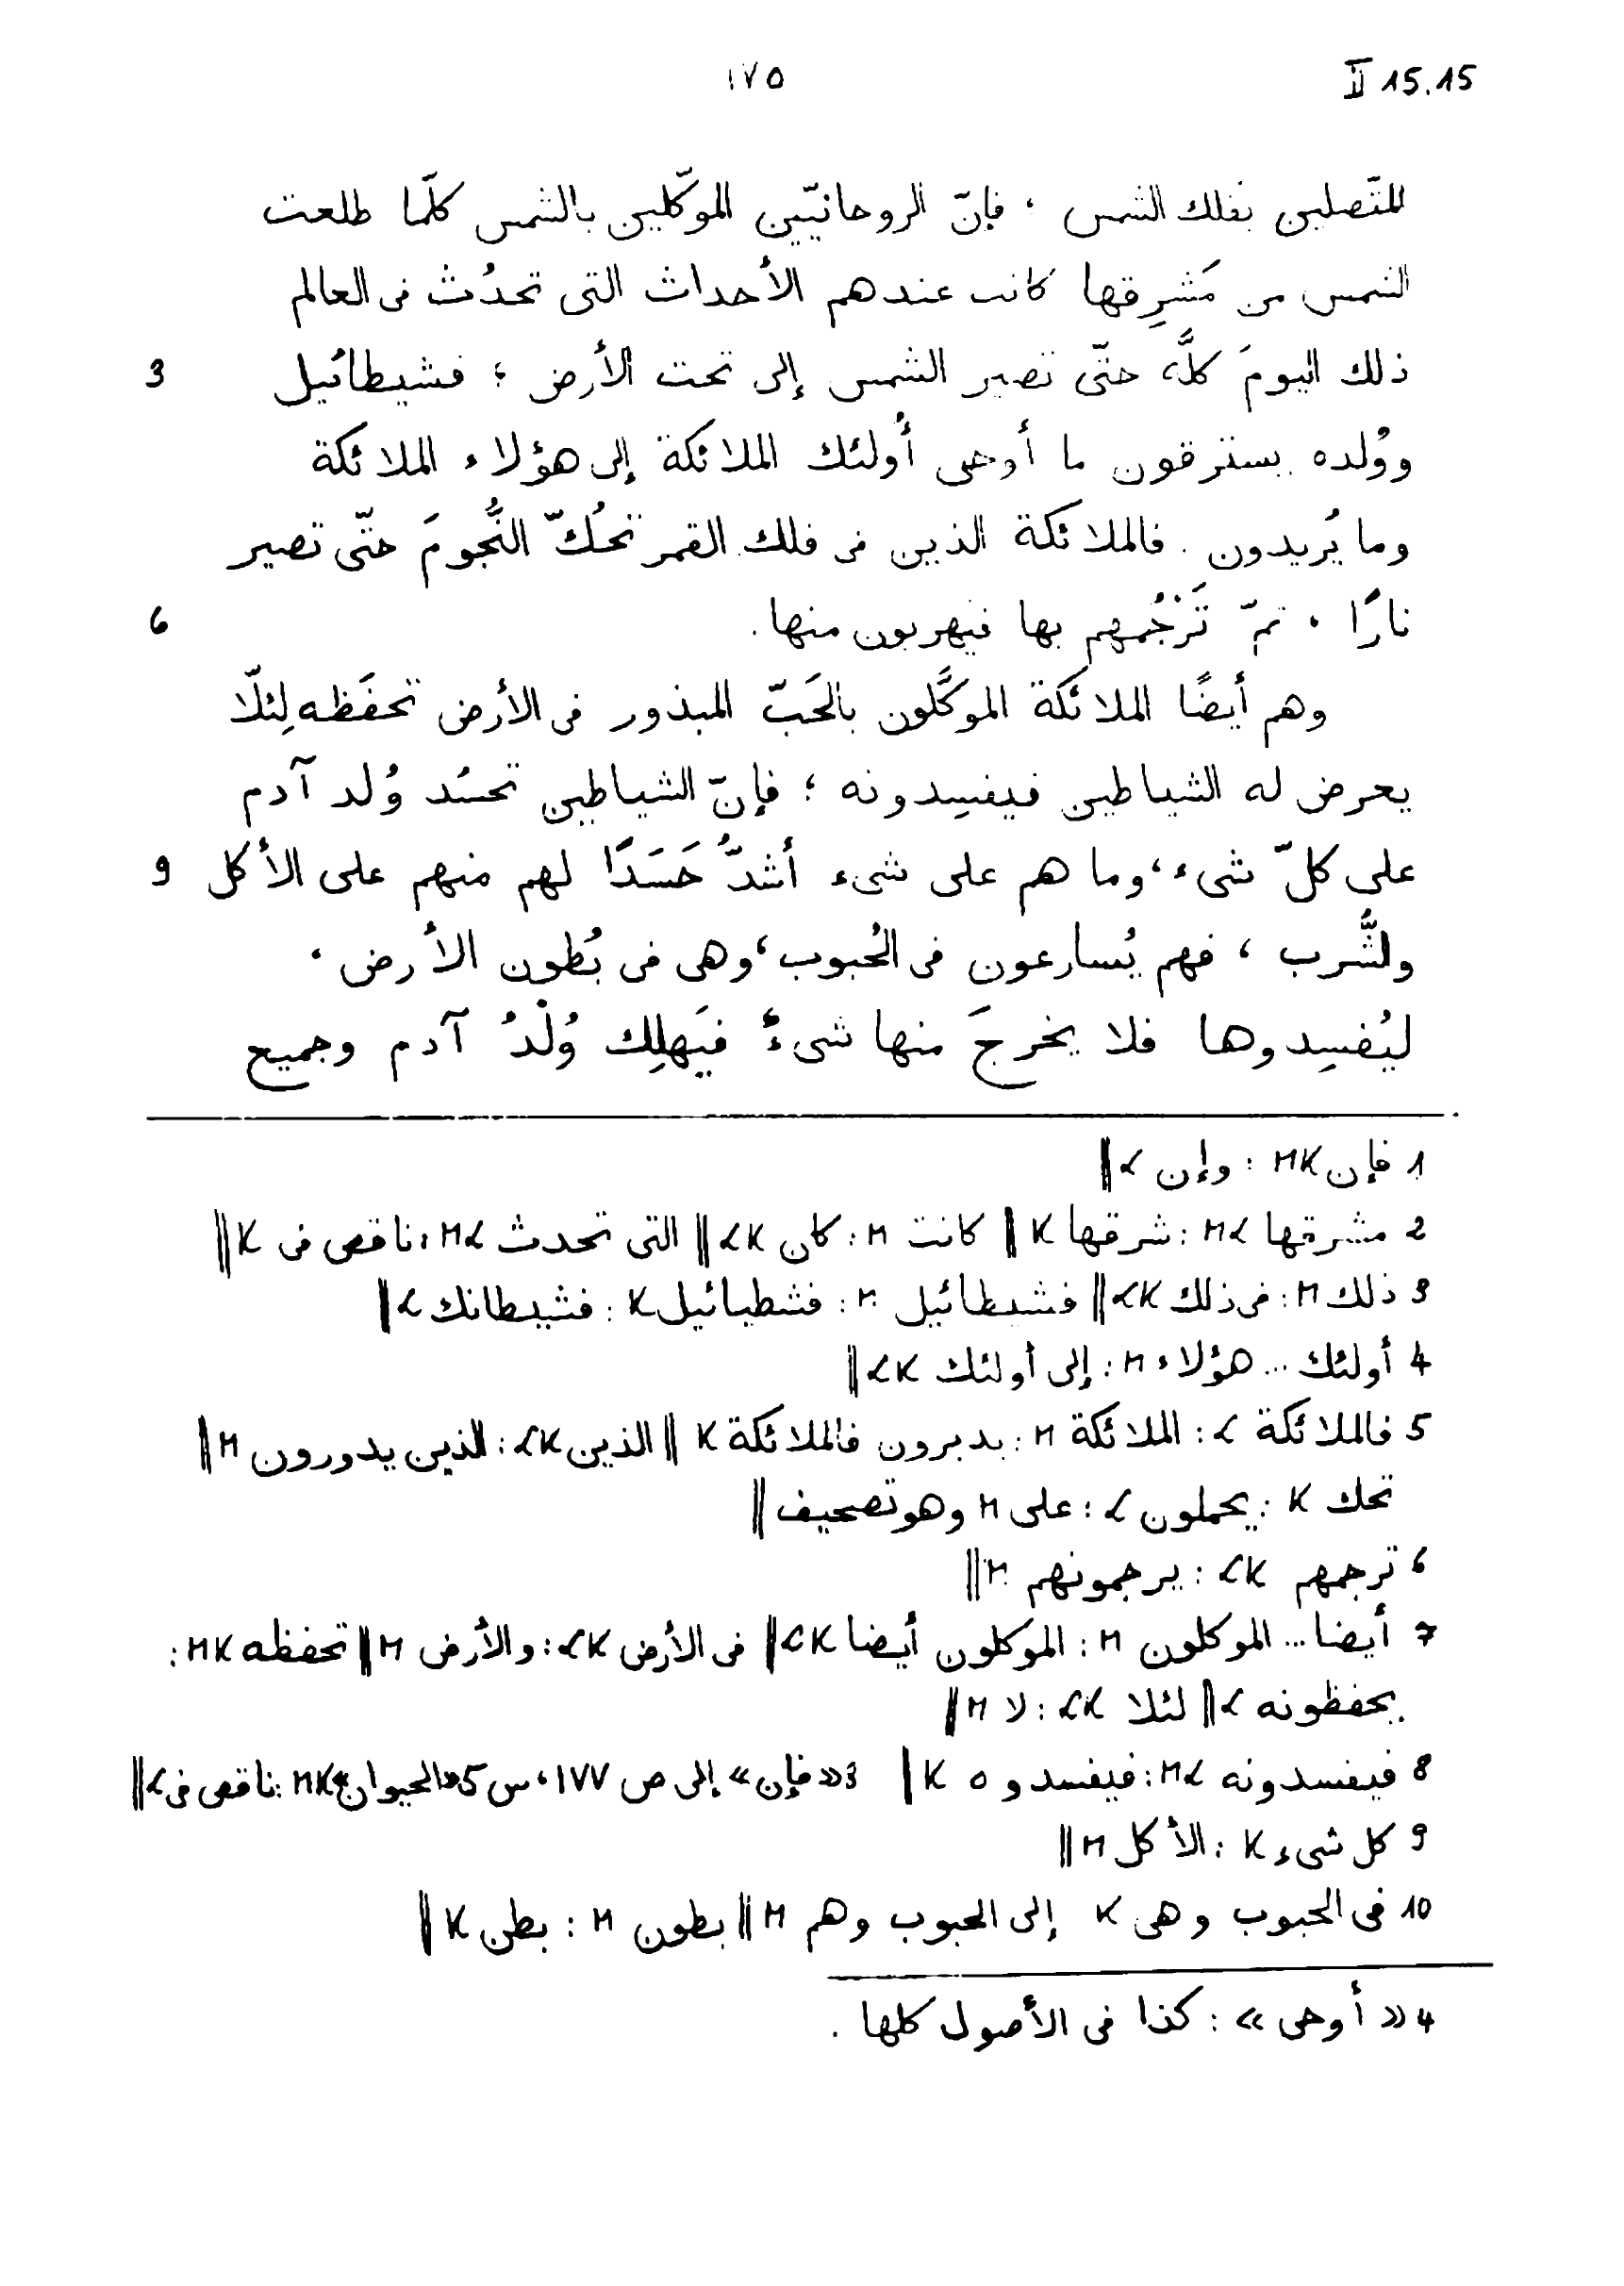 ١٧٥
II 15.15
للمتّصلين بفلك الشمس ، فإنّ الروحانيّين الموكّلين بالشمس كلّما طلعت
الشمس من مَشرِقها كانت عندهم الأحداث التى تحدُث فى العالم
3 ذلك اليومَ كلَّه حتّى تصير الشمس إلى تحت الأرض ؛ فشيطائيل
ووُلده يسترقون ما أوحى أُولئك الملائكة إلى هؤلاء الملائكة
وما يُريدون . فالملائكة الذين فى فلك القمر تحُكّ النُّجومَ حتّى تصير
6 نارًا ، ثمّ تَرْجُمهم بها فيهربون منها .
وهم أيضًا الملائكة الموكَّلون بالحَبّ المبذور فى الأرض تحفَظه لِئلّا
يعرض له الشياطين فيفسِدونه ؛ فإنّ الشياطين تحسُد وُلد آدم
9 على كلّ شىء ، وما هم على شىء أشدُّ حَسَدًا لهم منهم على الأكل
ولشُّرب ، فهم يُسارعون فى الحُبوب ، وهى فى بُطون الأرض ،
ليُفسِدوها فلا يخرجَ منها شىءٌ فيَهلِك وُلْدُ آدم وجميع
1 فإن MK : وإن L ||
2 مشرقها ML : شرقها K || كانت M : كان LK || التى تحدث ML : ناقص فى K ||
3 ذلك M : فى ذلك LK || فشيطائيل M : فشطيائيل K : فشيطانك L ||
4 أولئك ... هؤلاء M : إلى أولئك LK ||
5 فالملائكة L : الملائكة M : يدبرون فالملائكة K || الذين LK : الذين يدورون M ||
تحك K : يحملون L : على M وهو تصحيف ||
6 ترجمهم LK : يرجمونهم M ||
7 أيضا ... الموكلون M : الموكلون أيضا LK || فى الأرض LK : والأرض M || تحفظه MK :
يحفظونه L || لئلا LK : لا M ||
8 فيفسدونه ML : فيفسدوه K || 3 «فإن» إلى ص ١٧٧ ، س 5 «الحيوان» MK : ناقص فى L ||
9 كل شىء K : الأكل M ||
10 فى الحبوب وهى K إلى الحبوب وهم M || بطون M : بطن K ||
4 «أوحى» : كذا فى الأصول كلها .